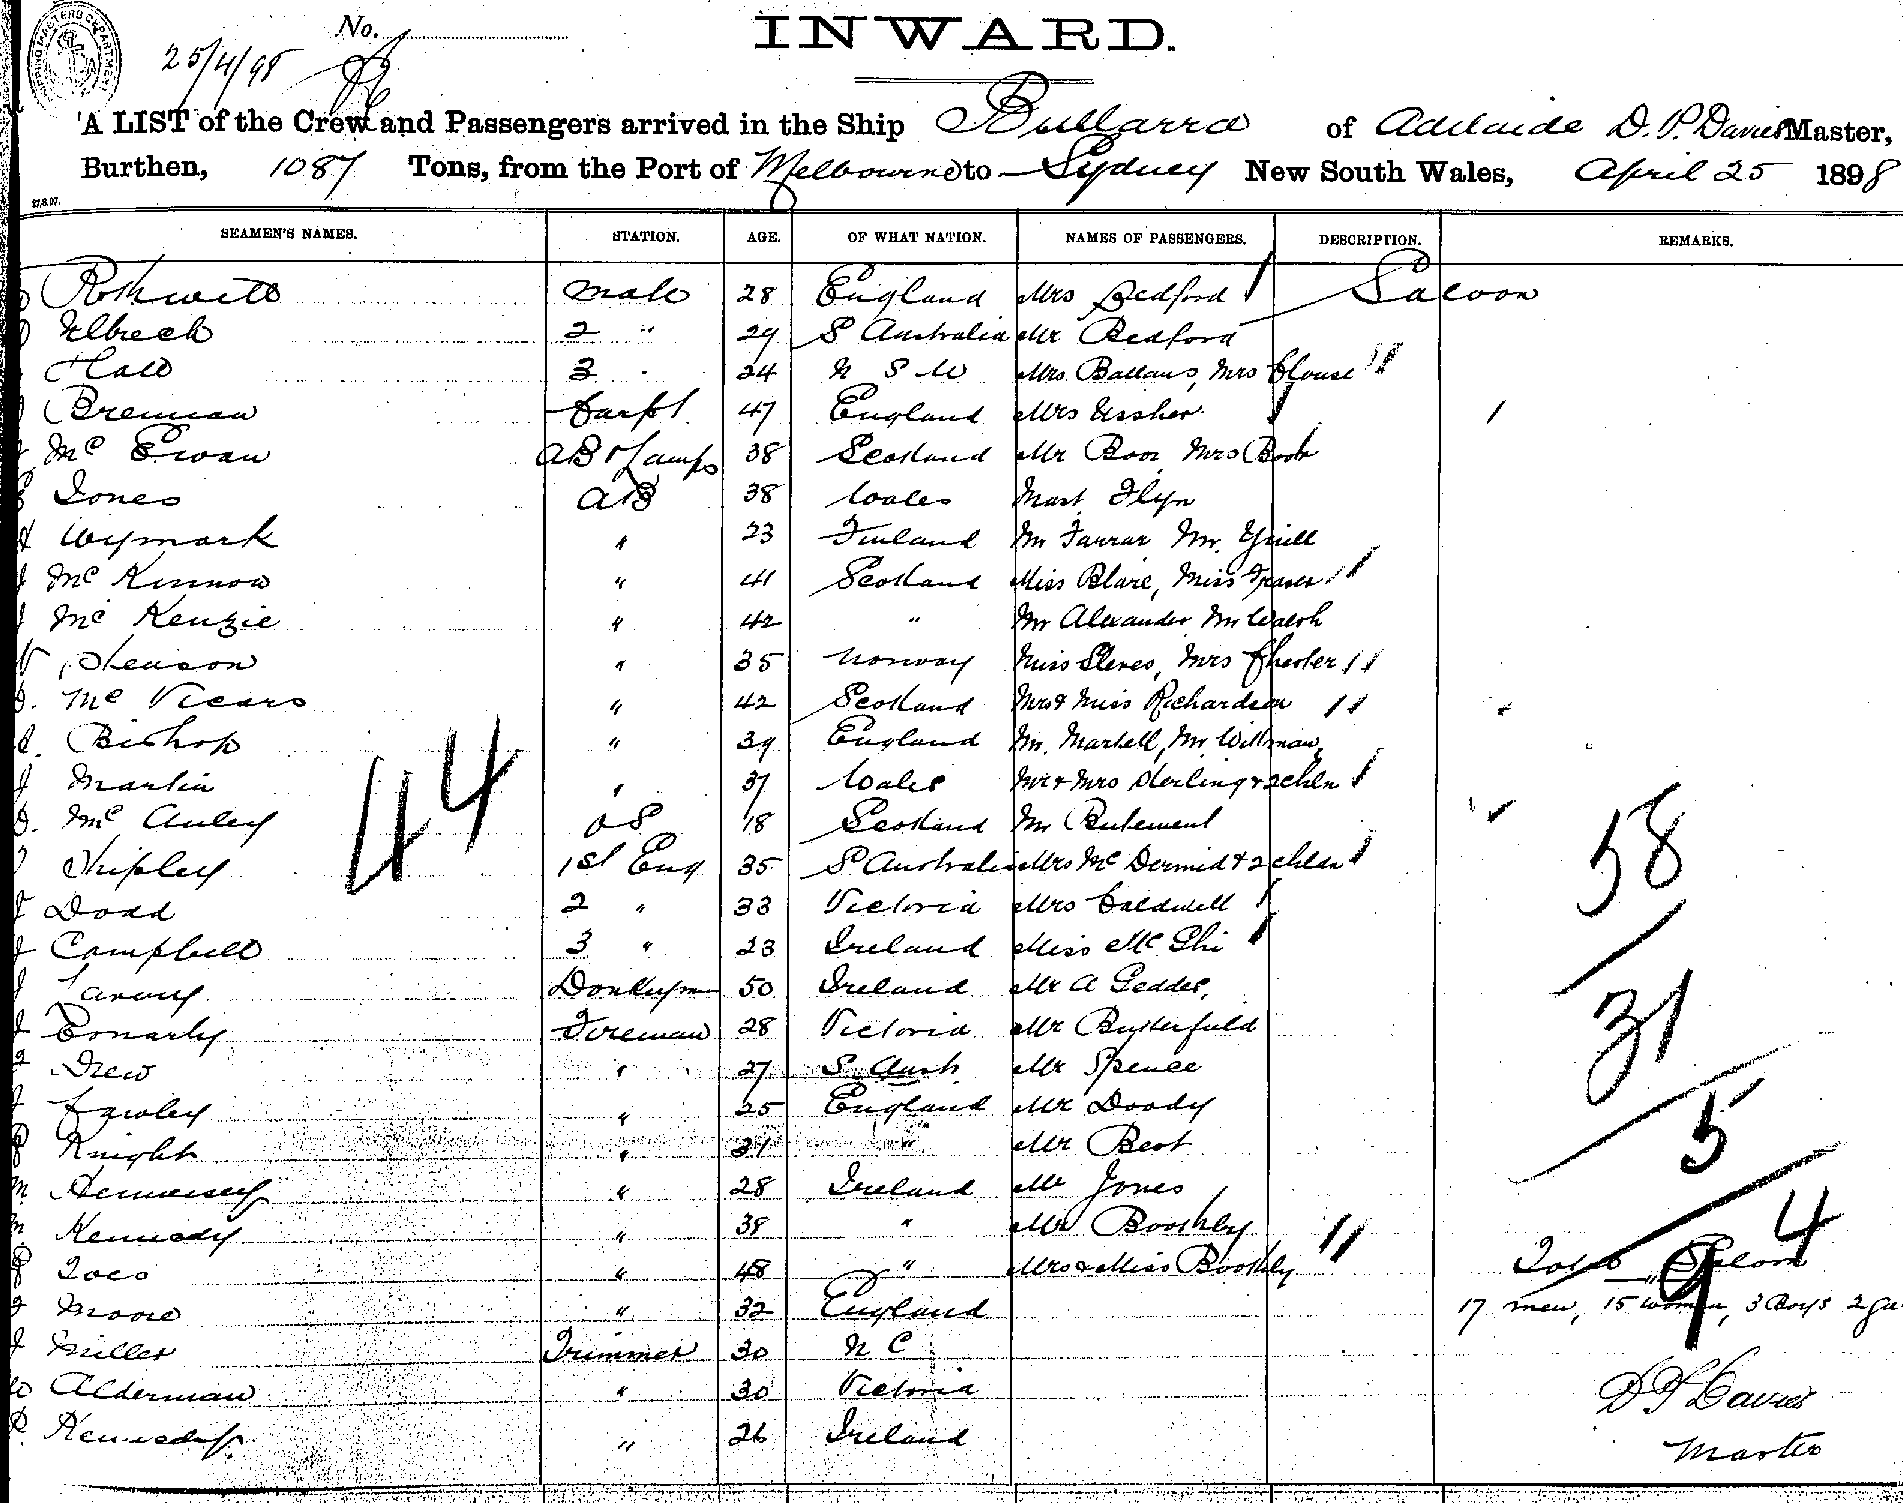 No.
25/4/98
INWARD.
A LIST of the Crew and Passengers arrived in the Ship Bullarra of Adelaide D. P. Davies Master,
Burthen, 1087 Tons, from the Port of Melbourne to Sydney New South Wales, April 25 1898
27.8.97.
SEAMEN'S NAMES. STATION. AGE. OF WHAT NATION. NAMES OF PASSENGERS. DESCRIPTION. REMARKS.
Rothwell Mate 28 England Mrs Bedford Saloon
2 " 29 S Australia Mr Bedford
Hall 3 24 N S W Mrs Ballans, Mrs Clouse
Brennan Carpt 47 England Mrs Ussher
Mc Ewan AB & Lamps 38 Scotland Mr Boor Mrs Boor
Jones AB 38 Wales Mast Flyn
Wymark " 23 Finland Mr Farrar Mr
Mc Kinnon " 41 Scotland Miss Blare, Miss Fraser
Mc Kenzie " 42 " Mr Alexander Mr Walsh
" 35 Norway Miss Mrs Chester
Mc Vicars " 42 Scotland Mrs & Miss Richardson
Bishop " 39 England Mr. Martell, Mr Willman
Martin " 37 Wales Mr & Mrs Sterling & 2 chln
Mc Auley OS 18 Scotland Mr Butement
Shipley 1st Eng 35 S Australia Mrs Mc Dermid & 2 chldn
44
58
Dodd 2 " 33 Victoria Mrs Caldwell
Campbell 3 " 23 Ireland Miss Mc Ghi
Donkeyman 50 Ireland Mr A Geddes
31
Conarty Fireman 28 Victoria Mr Butterfield
Drew " 27 S. Aust. Mr Spence
Lawley " 25 England Mr Doody
5
Knight " " Mr Best
Hennessey " 28 Ireland Mr Jones
4
Kennedy " 38 " Mr Boothby
" 48 " Mrs & Miss Boothby Total Saloon
9
Moore " 32 England 17 men, 15 women, 3 Boys 2
Miller Trimmer 30 N C
Alderman " 30 Victoria D P Davies
Kennedy " 26 Ireland Master